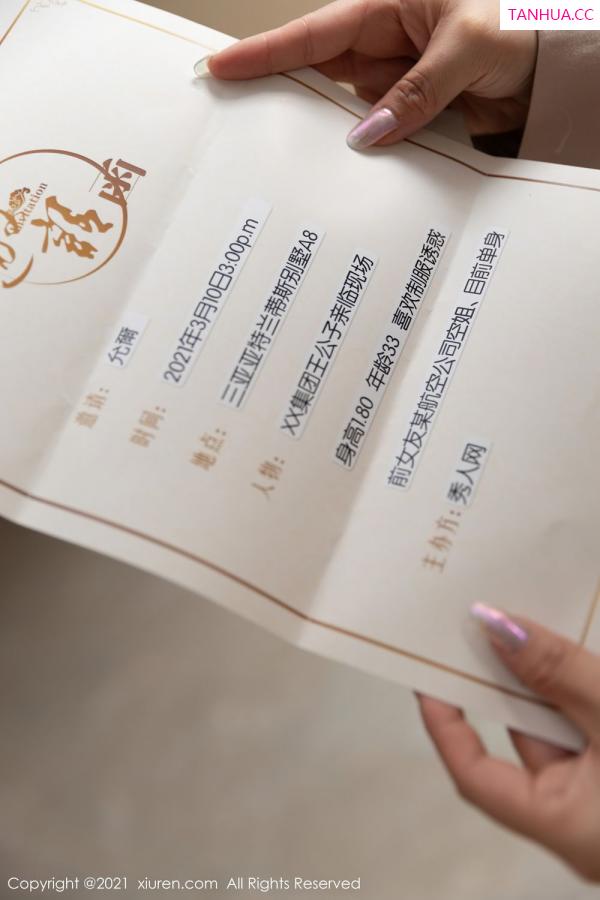 TANHUA.CC
Invitation
函
邀请：允薾
时间：2021年3月10日3:00p.m
地点：三亚亚特兰蒂斯别墅A8
人物：XX集团王公子亲临现场
身高1.80 年龄33 喜欢制服诱惑
前女友某航空公司空姐、目前单身
主办方：秀人网
Copyright @2021 xiuren.com All Rights Reserved